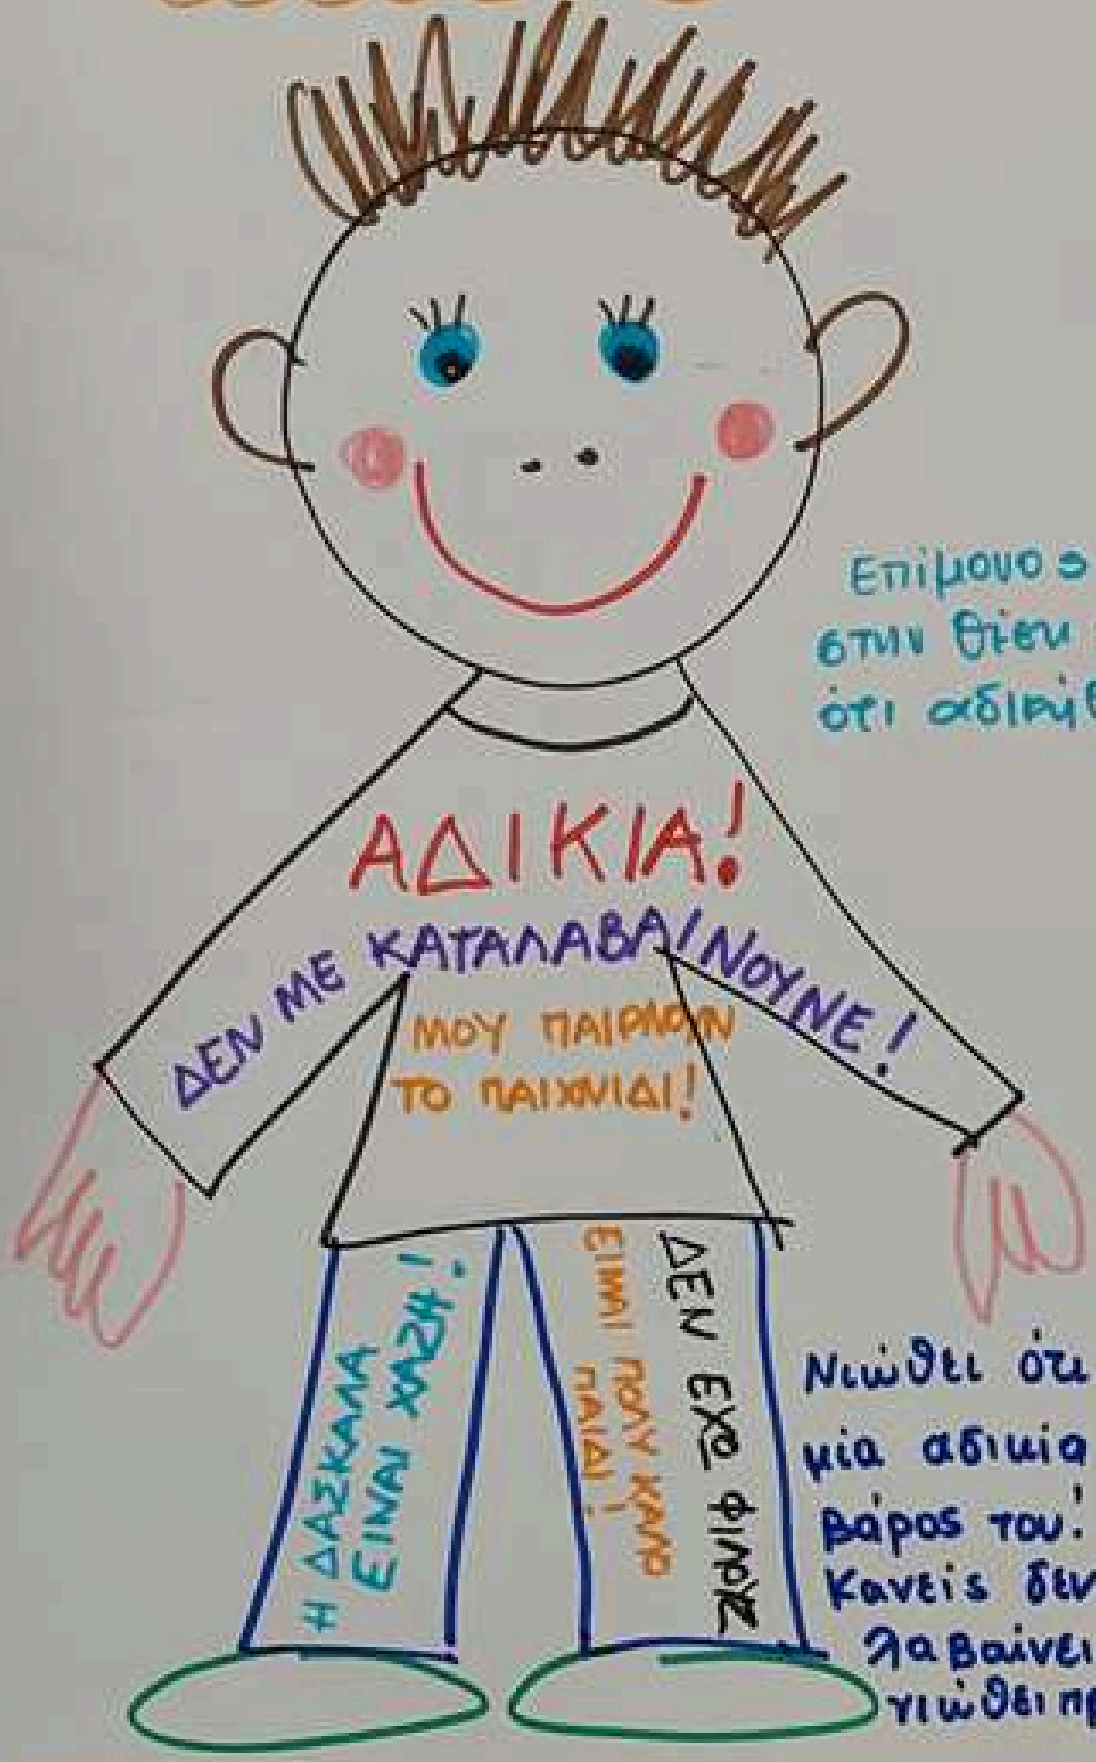 Επίμονος
στην θέση
ότι
ΑΔΙΚΙΑ!
ΔΕΝ ΜΕ ΚΑΤΑΛΑΒΑΙΝΟΥΝΕ!
ΜΟΥ ΠΑΙΡΝΟΥΝ
ΤΟ ΠΑΙΧΝΙΔΙ!
Η ΔΑΣΚΑΛΑ
ΕΙΝΑΙ ΧΑΖΗ!
ΔΕΝ ΕΧΩ ΦΙΛΟΥΣ
ΕΙΜΑΙ ΠΟΛΥ ΚΑΛΟ
ΠΑΙΔΙ!
Νιώθει ότι
μία αδικία
βάρος του!
Κανείς δεν
λαβαίνει
νιώθει